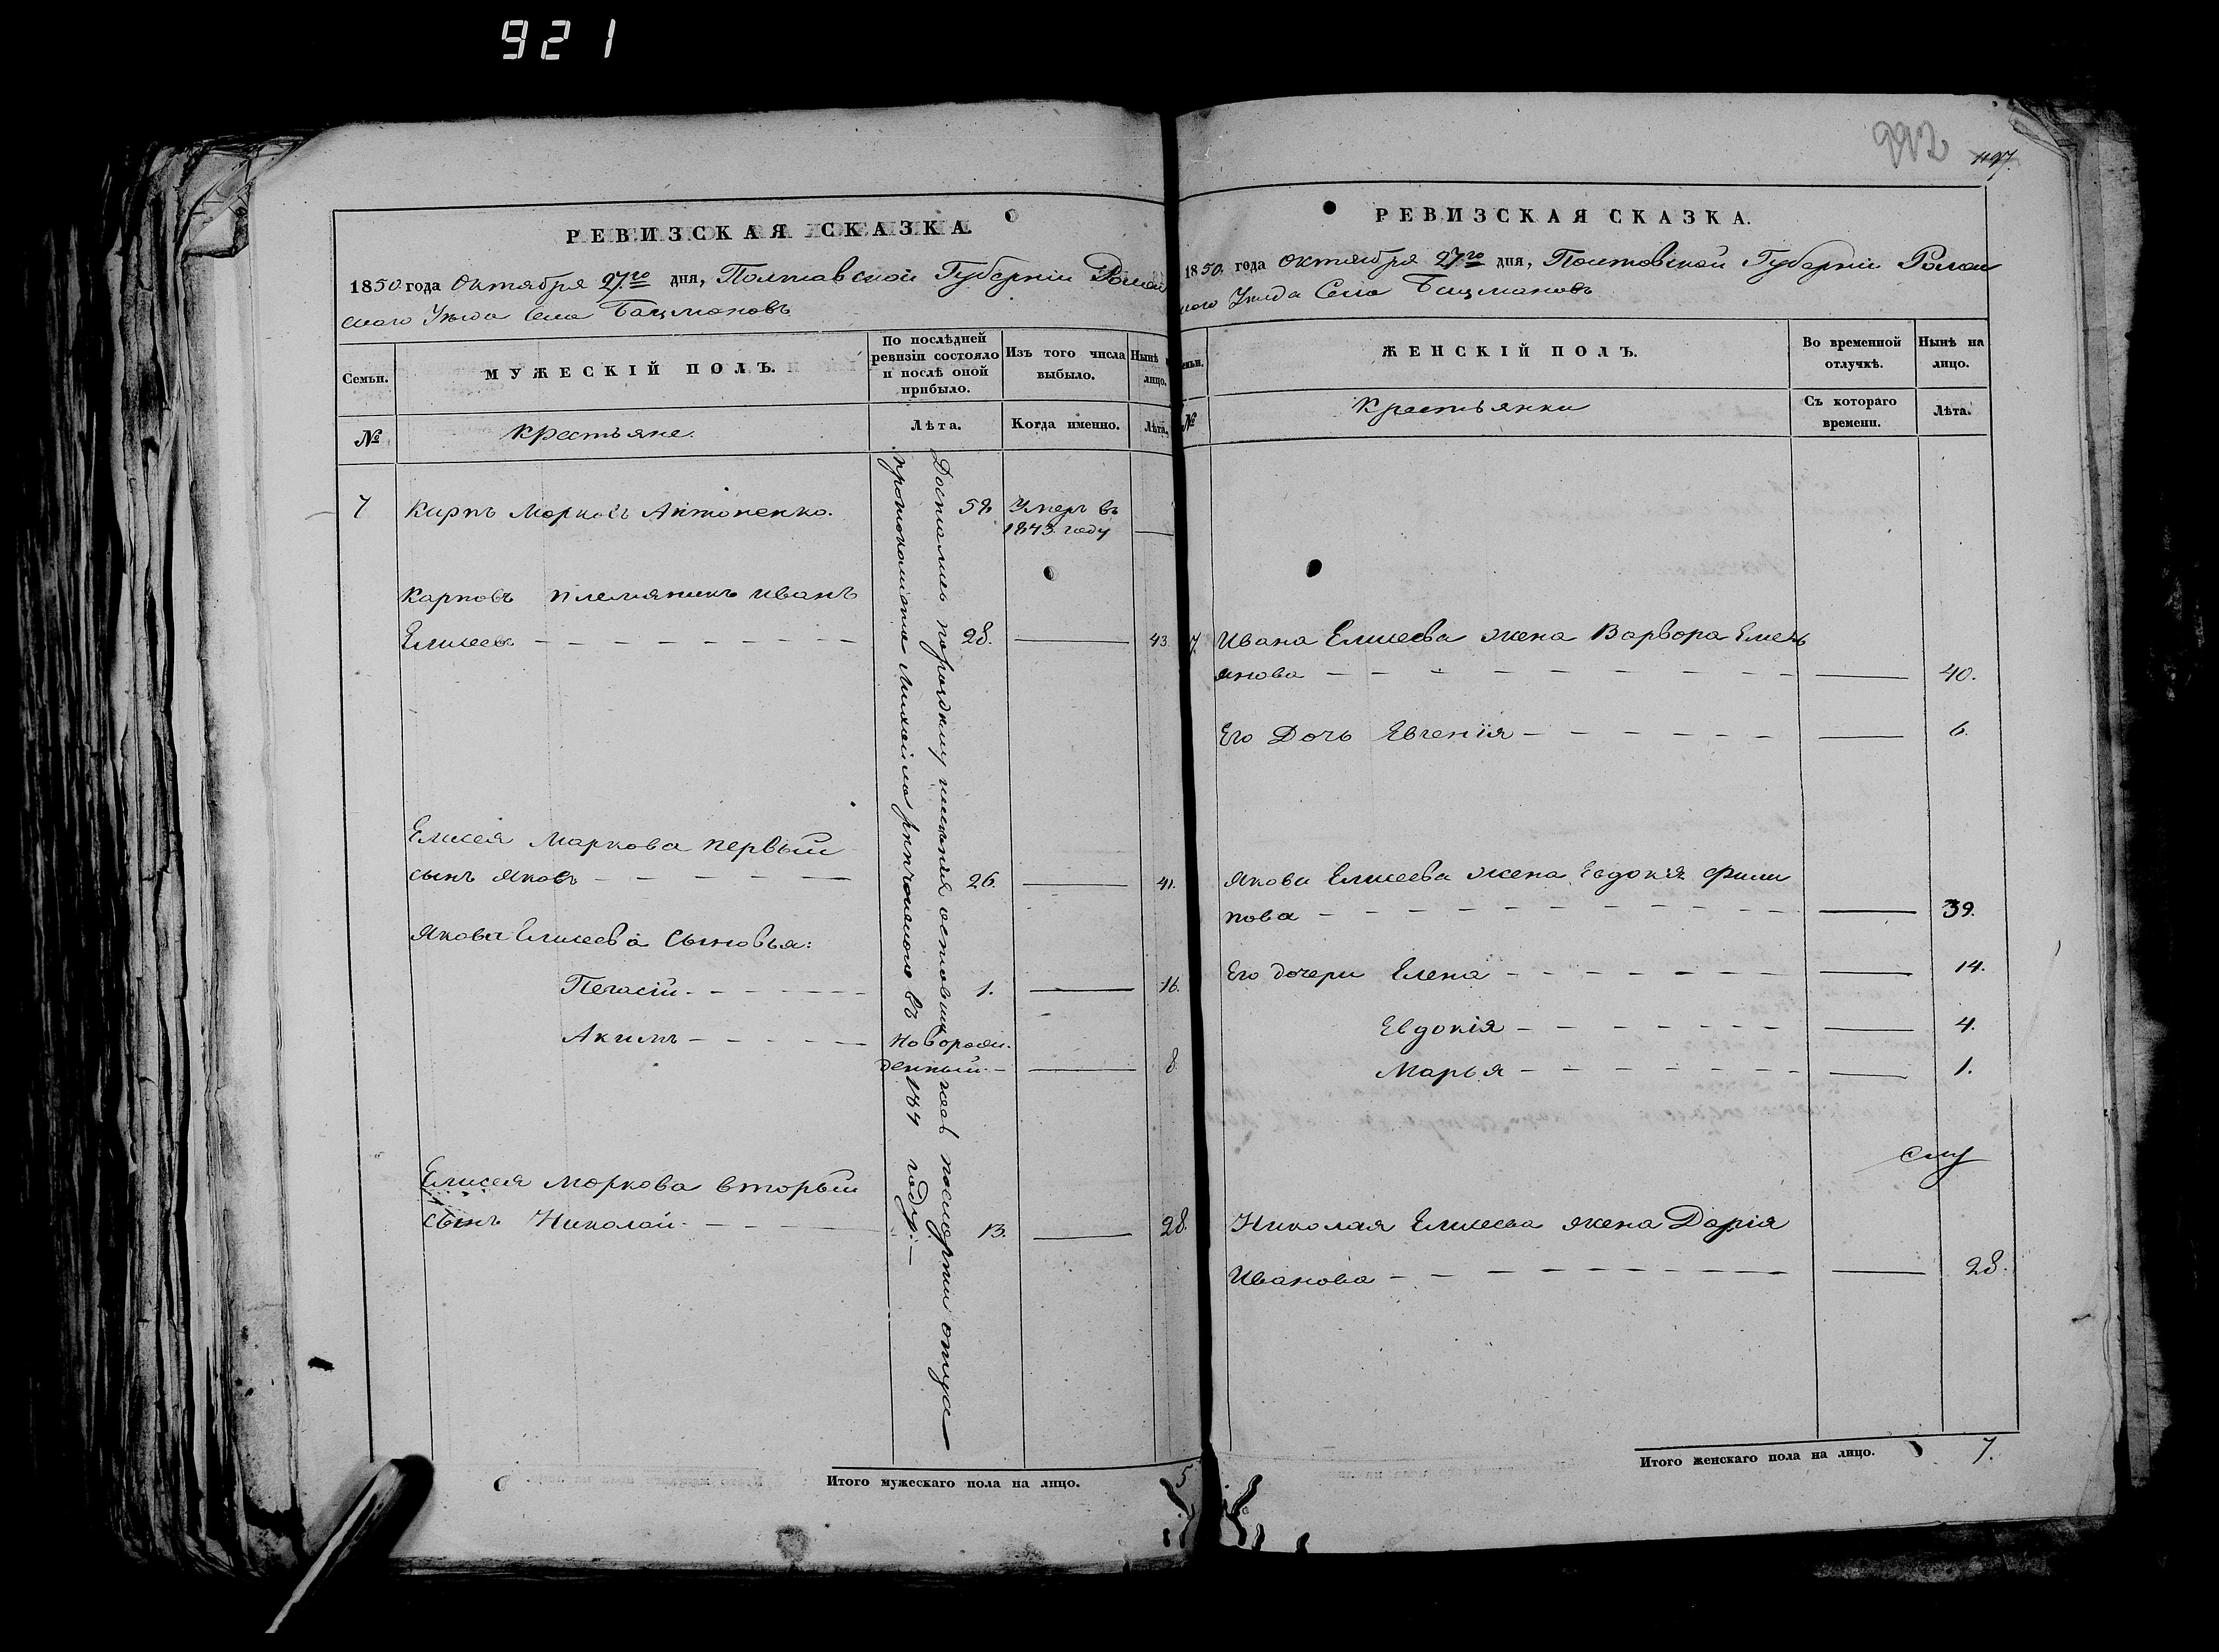 921
РЕВИЗСКАЯ СКАЗКА.
1850 года Октября 27го дня, Полтавской Губерніи Ромен
скаго Уезда Села Бацмановъ
Семьи.
МУЖЕСКІЙ ПОЛЪ.
По послѣдней
ревизіи состояло
и послѣ оной
прибыло.
Изъ того числа
выбыло.
Нынѣ
лицо.
№
Крестьяне.
Лѣта.
Когда именно.
Лѣта.
7 Карпъ Марковъ Антоненко. 58 Умеръ въ
1843 году
Карповъ племяникъ Иванъ
Елисеевъ 28. 43
Елисея Маркова первый
сынъ Яковъ 26. 41.
Якова Елисеева Сыновья:
Пегасій 1. 16.
Акимъ Новорож-
денный 8
Елисея Маркова вторый
сынъ Николай 13. 28
Достались по имѣнія отца
въ 184 году
Итого мужескаго пола на лицо. 5
992
1197.
РЕВИЗСКАЯ СКАЗКА.
1850 года Октября 27го дня, Полтавской Губерніи Ромен
Уезда Села Бацмановъ
ЖЕНСКІЙ ПОЛЪ.
Во временной
отлучкѣ.
Нынѣ на
лицо.
№
Крестьянки
Съ котораго
времени.
Лѣта.
7 Ивана Елисеева жена Варвора Емель
янова 40.
Его Дочь Евгенія 6.
Якова Елисеева жена Евдокія Фили
пова 39.
Его дочери Елена 14.
Евдокія 4.
Марья 1.
Николая Елисеева жена Дарія
Иванова 28.
Итого женскаго пола на лицо. 7.